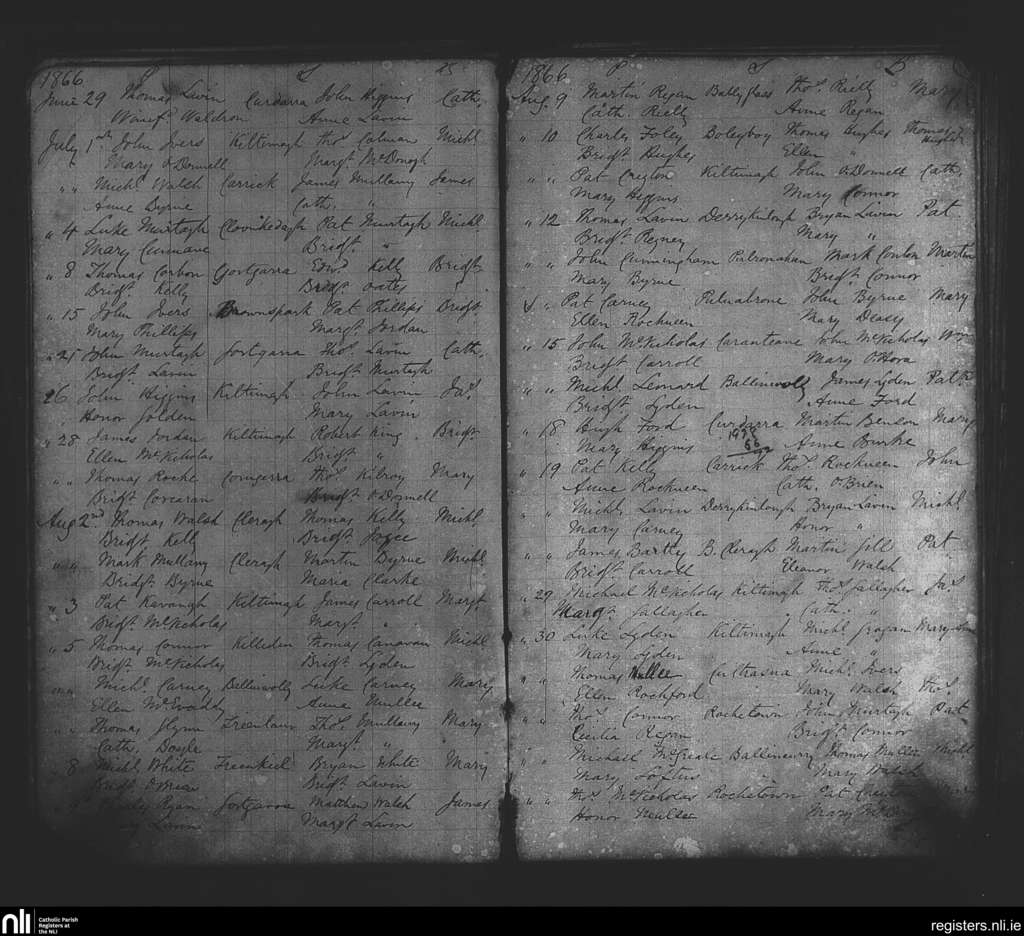 1866 P S B
June 29 Thomas Lavin Curdarra John Higgins Cath.
Winif. Waldron Anne Lavin
July 1st John Ivers Kiltimagh Thos. Colman Michl.
Mary O'Donnell Margt. McDonagh
" " Michl. Walsh Carrick James Mullany James
Anne Byrne Cath. "
" 4 Luke Murtagh Cloonkedagh Pat Murtagh Michl.
Mary Cunnane Bridgt. "
" 8 Thomas Corbon Gortgarra Edwd. Kelly Bridgt.
Bridgt. Kelly Bridgt. Oates
" 15 John Ivers Brownspark Pat Phillips Bridgt.
Mary Phillips Margt. Jordan
" 25 John Murtagh Gortgarra Thos. Lavin Cath.
Bridgt. Lavin Bridgt. Murtagh
26 John Higgins Kiltimagh John Lavin Jas.
Honor Golden Mary Lavin
" 28 James Jordan Kiltimagh Robert King Bridgt
Ellen McNicholas Bridgt "
" " Thomas Roche Cordgerra Thos. Kilroy Mary
Bridgt Corcoran Bridgt O'Donnell
Aug 2nd Thomas Walsh Cleragh Thomas Kelly Michl.
Bridgt Kelly Bridgt Joyce
" " Mark Mullany Cleragh Martin Byrne Michl
Bridgt. Byrne Maria Clarke
" 3 Pat Kavanagh Kiltimagh James Carroll Margt
Bridgt. McNicholas Margt "
" 5 Thomas Connor Killedin Thomas Canavan Michl
Bridgt. McNicholas Bridgt. Lyden
" " Michl. Carney Ballinvolly Luke Carney Mary
Ellen McEvaddy Anne Mullee
" " Thomas Flynn Treenlaur Thos. Mullany Mary
Cath. Doyle Margt. "
" 8 Michl. White Treenkeel Bryan White Mary
Bridgt. O'Brien Bridgt Lavin
Regan Gortgarra Matthew Walsh James
Lavin Margt Lavin
1866 P S B
Aug. 9 Martin Regan Ballyglass Thos. Rielly Mary
Cath. Rielly Anne Regan
" 10 Charley Foley Boleyboy Thomas Hughes Thomas Hughes
Bridgt. Hughes Ellen "
" " Pat Cregton Kiltimagh John O'Donnell Cath.
Mary Higgins Mary Connor
" 12 Thomas Lavin Derrykinlough Bryan Lavin Pat
Bridgt. Regney Mary "
" " John Cunningham Pulronahan Mark Conlon Martin
Mary Byrne Bridgt. Connor
" Pat Carney Pulnabrone John Byrne Mary
Ellen Rochneen Mary Deasy
" 15 John McNicholas Caranteane John McNicholas
Bridgt Carroll Mary O'Hora
" " Michl. Leonard Ballinvolly James Lyden Patk
Bridgt. Lyden Anne Ford
" 18 Hugh Ford Curdarra Martin Benson Mary
Mary Higgins Anne Bourke
" 19 Pat Kelly Carrick Thos. Rochneen John
Anne Rochneen Cath. O'Brien
" " Michl. Lavin Derrykinlough Bryan Lavin Michl.
Mary Carney Honor "
" " James Bartley B. Cleragh Martin Gill Pat
Bridgt. Carroll Eleanor Walsh
" 29 Michael McNicholas Kiltimagh Thos. Gallagher Jas.
Margt. Gallagher Cath. "
" 30 Luke Lyden Kiltimagh Michl. Grogan Mary Anne
Mary Lyden Anne "
" " Thomas Mullee Cultrasna Michl. Ivers
Ellen Rochford Mary Walsh Thos.
" " Thos. Connor Rochetown John Murtagh Pat
Cecilia Regan Bridgt Connor
" " Michael McGreale Ballineurry Thomas Mullee Michl
Mary Loftus Mary Walsh
" " Thos. McNicholas Rochetown Pat
Honor Mullee Mary
nli Catholic Parish
Registers at
the NLI
registers.nli.ie